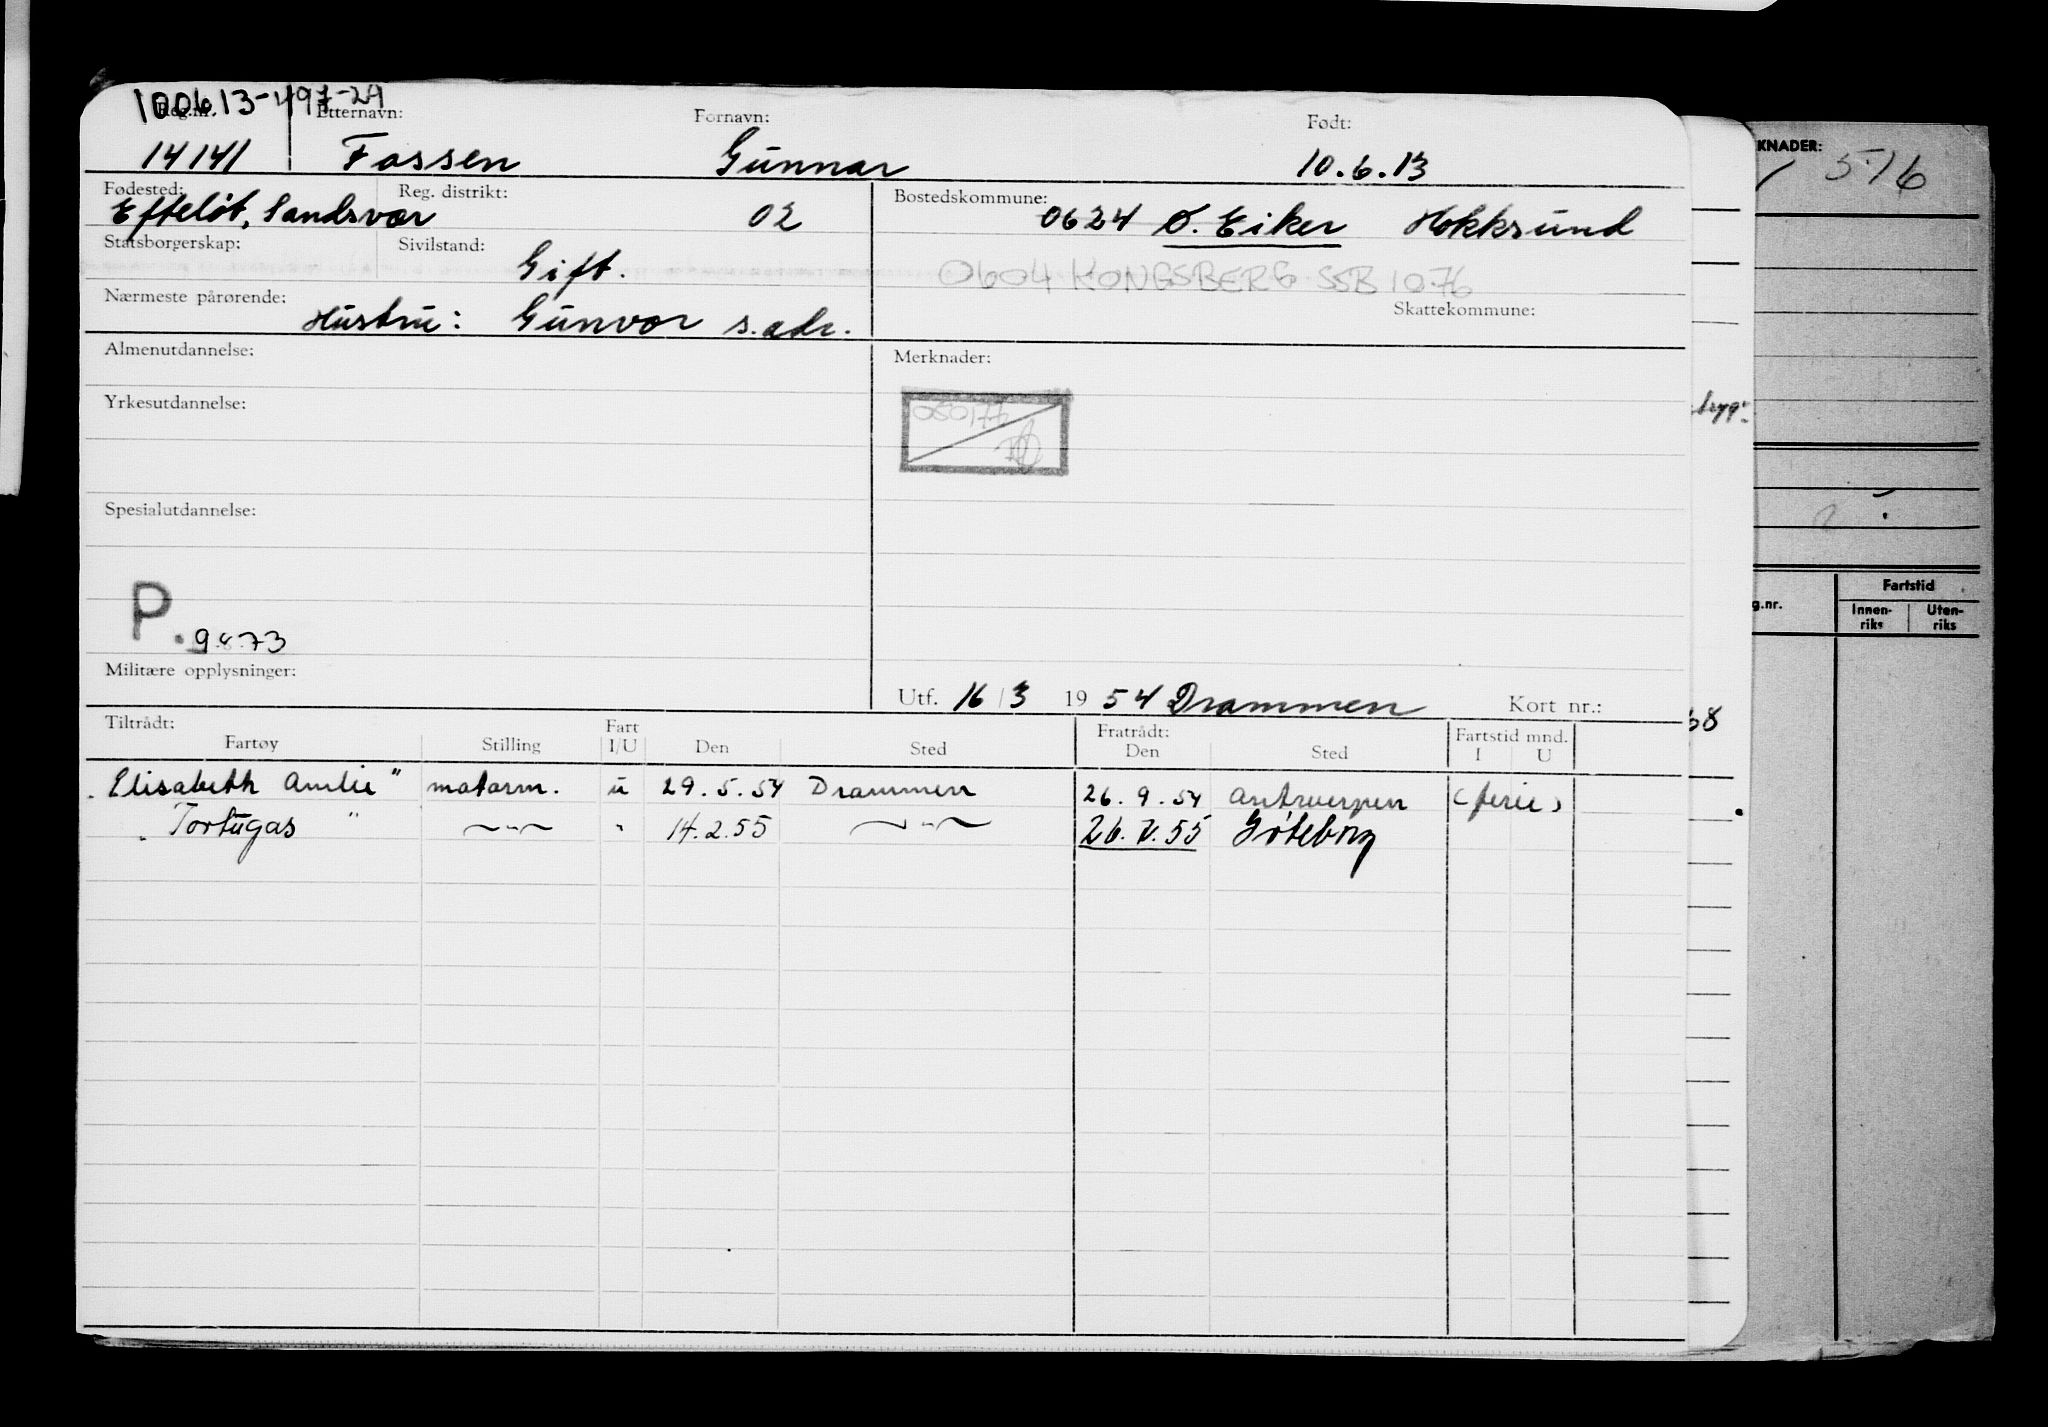 100613-497-29
Reg.nr. Etternavn: Fornavn: Født:
14141 Fossen Gunnar 10.6.13
Fødested: Reg. distrikt: Bostedskommune:
Efteløt, Sandsvær 02 0624 Ø. Eiker Hokksund
Statsborgerskap: Sivilstand:
Gift.
0604 KONGSBERG SSB 1076
Nærmeste pårørende: Skattekommune:
Hustru: Gunvor s. adr.
Almenutdannelse: Merknader:
Yrkesutdannelse:
050177
Spesialutdannelse:
P. 9.8.73
Militære opplysninger:
Utf. 16/3 1954 Drammen Kort nr.:
Tiltrådt: Fratrådt: Fartstid mnd.
Fartøy Stilling Fart I/U Den Sted Den Sted I U
"Elisabeth Amlie" matorm. u 29.5.54 Drammen 26.9.54 Antwerpen (ferie)
"Tortugas" —"— " 14.2.55 —"— 26.7.55 Gøteborg
KNADER:
516
bygs
68
g.nr.
Fartstid
Innen-
riks
Uten-
riks